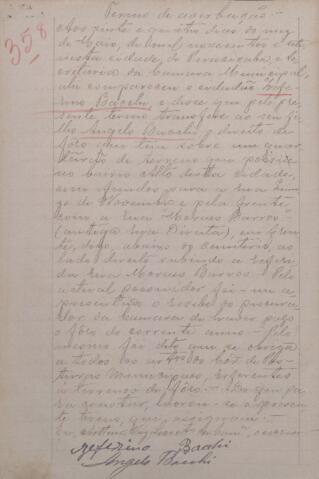 358
Termo de averbação
Aos vinte e quatro dias do mez
de Maio, de mil novecentos e
nesta cidade, de Piracicaba, e
Secretaria da Camara Municipal,
ahi compareceu o cidadão Zefe-
rino Bacchi, e disse que pelo pre-
sente termo transfere ao seu fi-
lho Angelo Bacchi o direito de
fôro que tem sobre um quar-
teirão de terreno que possue
no bairro Alto desta cidade,
com fundos para a rua
de Novembro e pela frente
com a rua Moraes Barros
(antiga rua Direita), em fren-
te, digo, abaixo do cemiterio, ao
lado direito subindo a referi-
da rua Moraes Barros. Pelo
actual possuidor foi-me a
presentado o recibo do procura-
dor da Camara de haver pago
o fôro do corrente anno. Pelo
mesmo foi dito que se obriga
a todos os artigos das Pos-
turas Municipaes, referentes
á terrenos de fôro. E de que pa-
ra constar, lavrou-se o presente
termo, que assignam.
Zeferino Bacchi
Angelo Bacchi